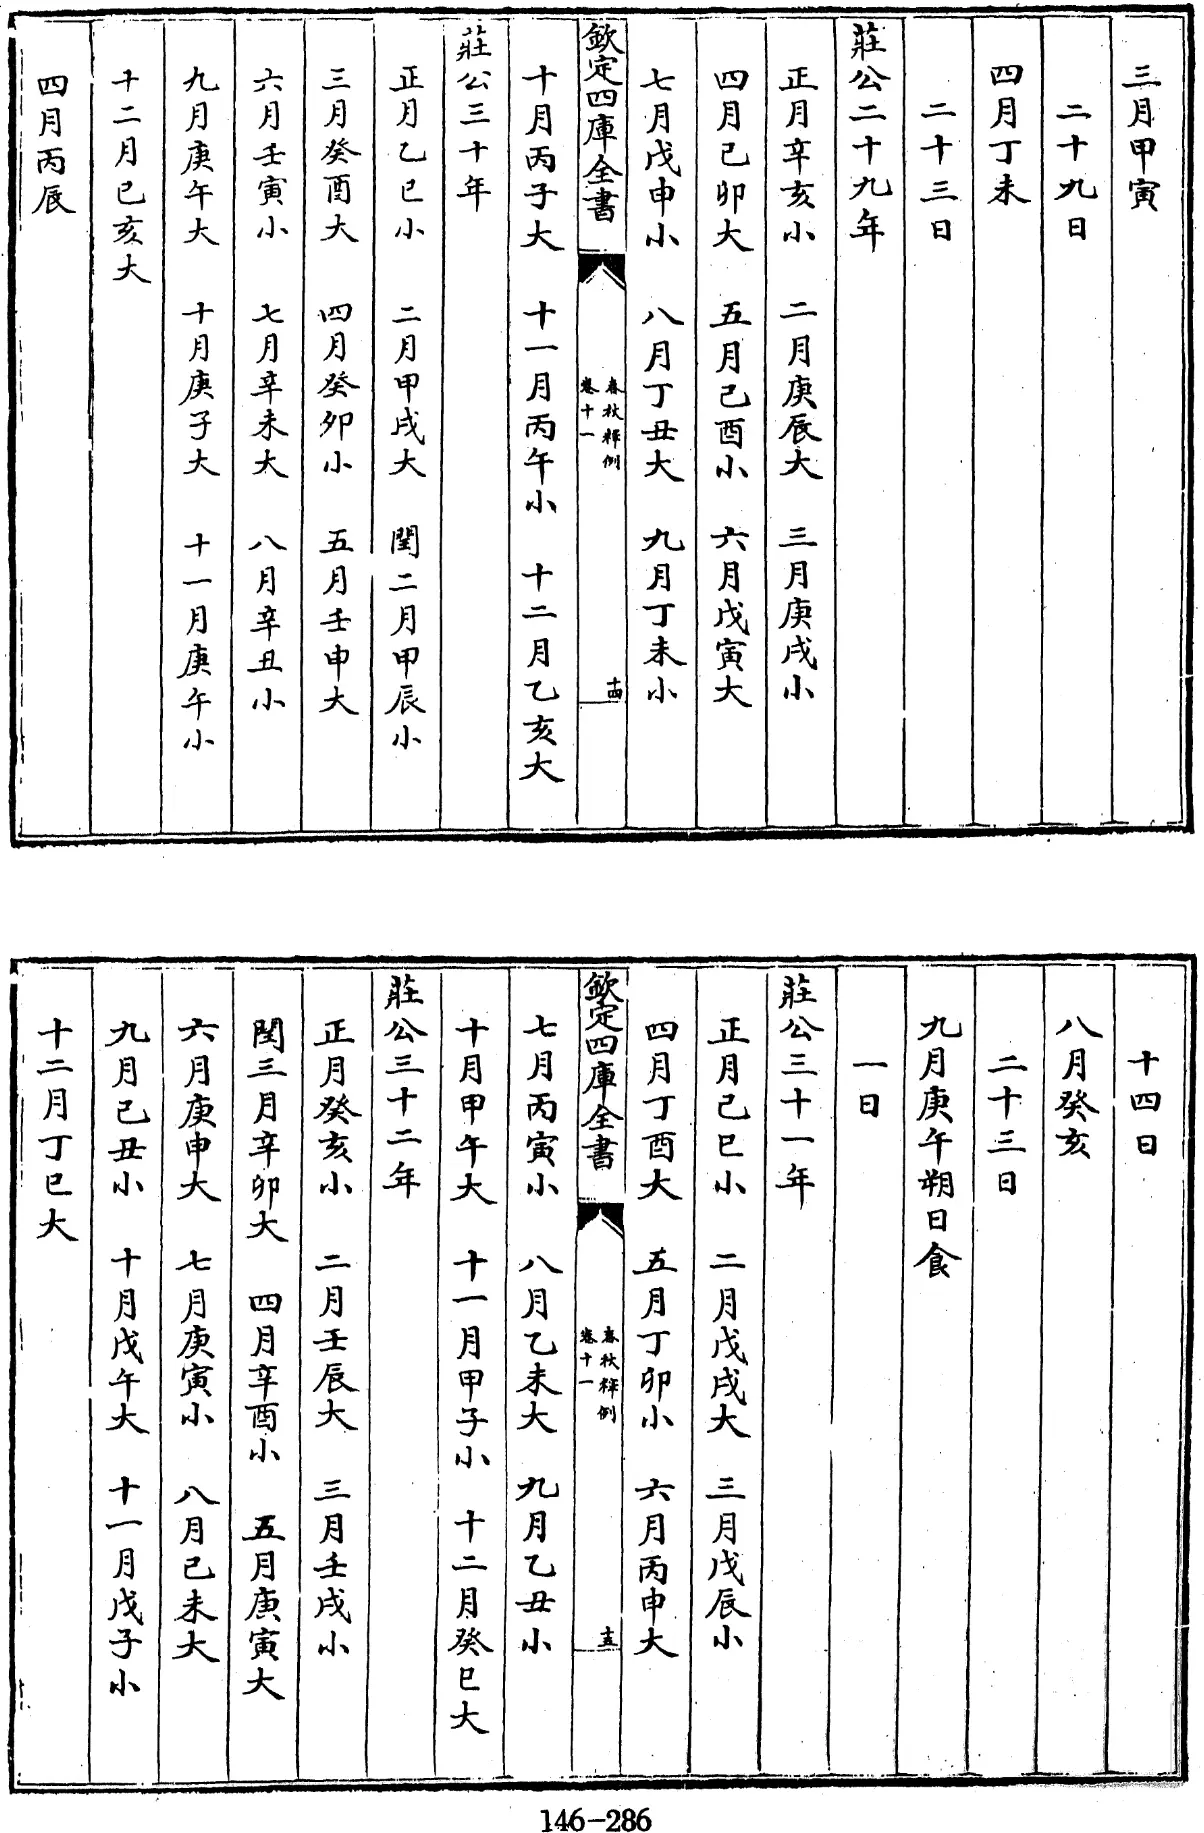 三月甲寅
二十九日
四月丁未
二十三日
莊公二十九年
正月辛亥小　二月庚辰大　三月庚戌小
四月己卯大　五月己酉小　六月戊寅大
七月戊申小　八月丁丑大　九月丁未小
欽定四庫全書　春秋釋例　卷十一　十四
十月丙子大　十一月丙午小　十二月乙亥大
莊公三十年
正月乙巳小　二月甲戌大　閏二月甲辰小
三月癸酉大　四月癸卯小　五月壬申大
六月壬寅小　七月辛未大　八月辛丑小
九月庚午大　十月庚子大　十一月庚午小
十二月己亥大
四月丙辰
十四日
八月癸亥
二十三日
九月庚午朔日食
一日
莊公三十一年
正月己巳小　二月戊戌大　三月戊辰小
四月丁酉大　五月丁卯小　六月丙申大
欽定四庫全書　春秋釋例　卷十一　十五
七月丙寅小　八月乙未大　九月乙丑小
十月甲午大　十一月甲子小　十二月癸巳大
莊公三十二年
正月癸亥小　二月壬辰大　三月壬戌小
閏三月辛卯大　四月辛酉小　五月庚寅大
六月庚申大　七月庚寅小　八月己未大
九月己丑小　十月戊午大　十一月戊子小
十二月丁巳大
146-286